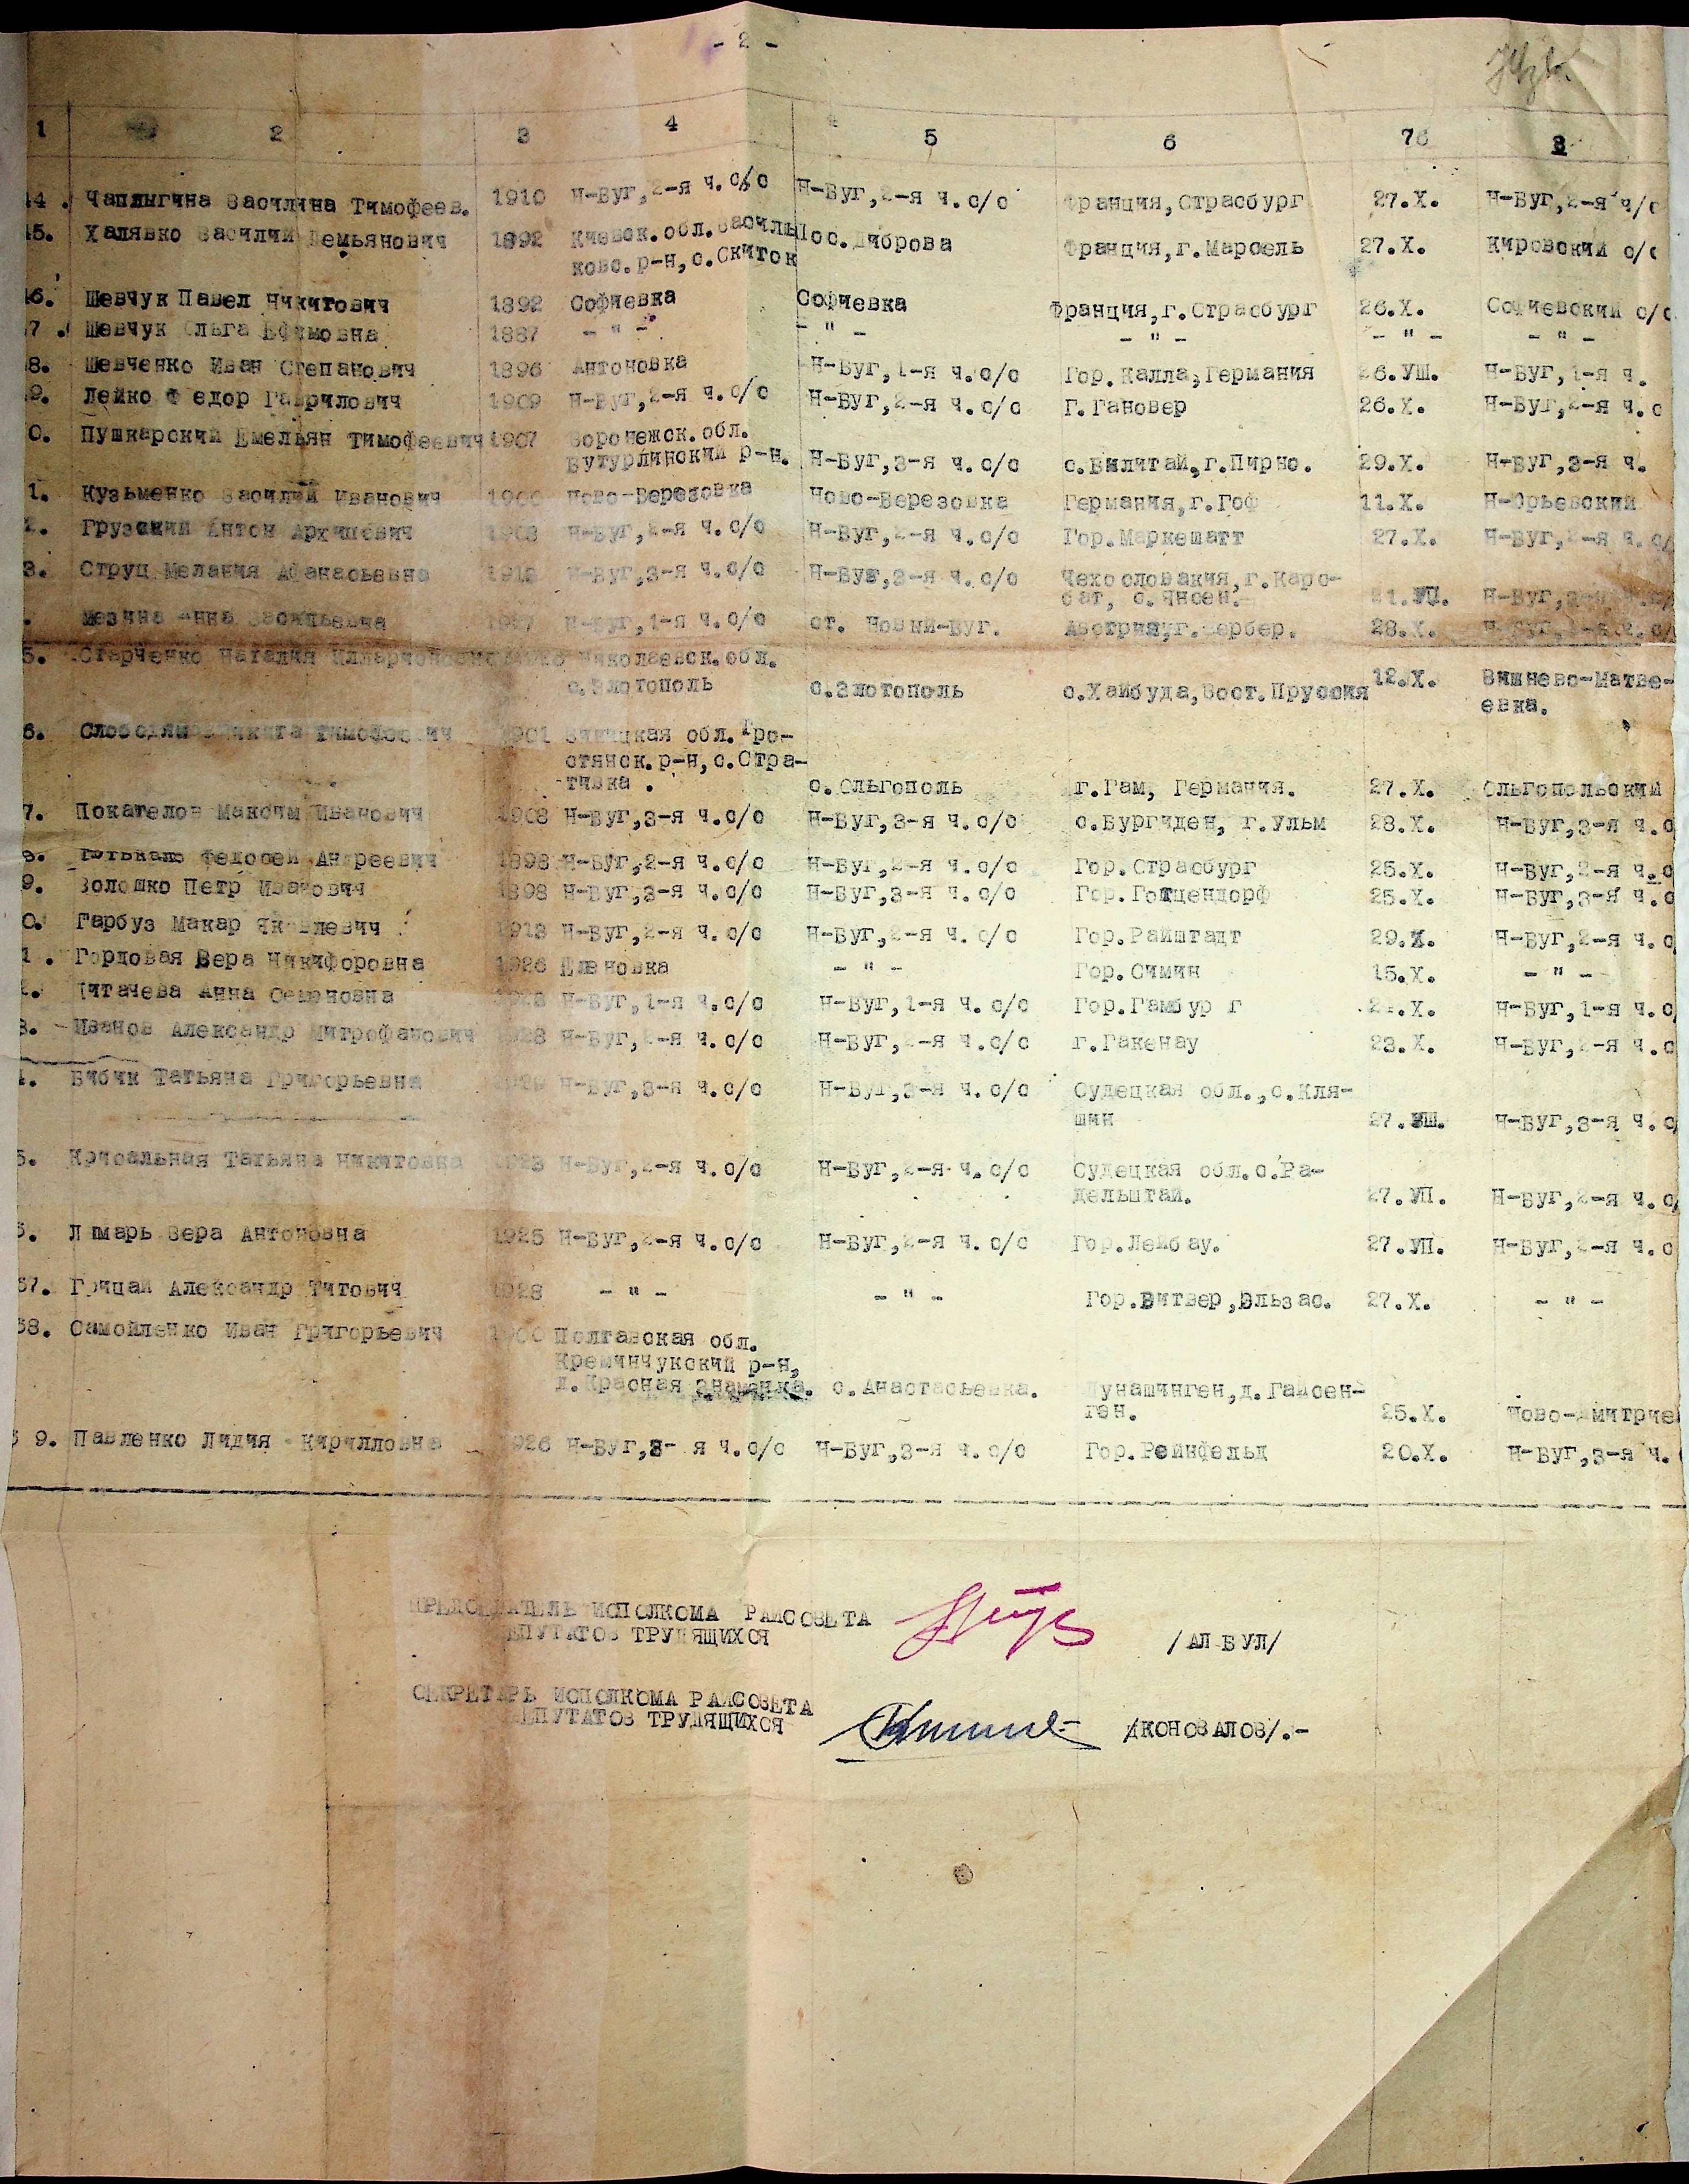 - 2 -
1 2 3 4 5 6 7б 8
14. Чаплыгина Василина Тимофеев. 1910 Н-Буг,2-я ч.с/с Н-Буг,2-я ч.с/с Франция,Страсбург 27.Х. Н-Буг,2-я ч/с
15. Халявко Василий Демьянович 1892 Киевск.обл.Василь Пос.Диброва Франция,г.Марсель 27.Х. Кировский с/с
ковс.р-н,с.Скиток
16. Шевчук Павел Никитович 1892 Софиевка Софиевка Франция,г.Страсбург 26.Х. Софиевский с/с
17. Шевчук Ольга Ефимовна 1887 - " - - " - - " - - " - - " -
18. Шевченко Иван Степанович 1896 Антоновка Н-Буг,1-я ч.с/с Гор.Калла,Германия 26.УШ. Н-Буг,1-я ч.
9. Лейко Федор Гаврилович 1909 Н-Буг,2-я ч.с/с Н-Буг,2-я ч.с/с Г.Гановер 26.Х. Н-Буг,2-я ч.с
0. Пушкарский Емельян Тимофеевич 1907 Воронежск.обл.
Бутурлинский р-н. Н-Буг,3-я ч.с/с с.Вилитай,г.Пирно. 29.Х. Н-Буг,3-я ч.
1. Кузьменко Василий Иванович Ново-Березовка Ново-Березовка Германия,г.Гоф 11.Х. Н-Юрьевский
2. Грузский Антон Архипович 1903 Н-Буг,2-я ч.с/с Н-Буг,2-я ч.с/с Гор.Маркешатт 27.Х. Н-Буг,2-я ч.с/
3. Струц Мелания Афанасьевна Н-Буг,3-я ч.с/с Н-Буг,3-я ч.с/с Чехословакия,г.Карс-
бат, с.Янсен. 21.УП. Н-Буг,
Мезина Анна Васильевна 1927 Н-Буг,1-я ч.с/с ст. Новый-Буг. Австрия,г.Фербер. 28.Х. Н-Буг,1-я ч.с/
5. Старченко Наталия Илларионовна Николаевск.обл.
с.Злотополь с.Злотополь с.Хайбуда,Вост.Пруссия 12.Х. Вишнево-Матве-
евка.
6. Никита Тимофеевич 1901 Винницкая обл.Тро-
стянск.р-н,с.Стра-
тивка. с.Ольгополь г.Гам, Германия. 27.Х. Ольгопольский
7. Покателов Максим Иванович 1908 Н-Буг,3-я ч.с/с Н-Буг,3-я ч.с/с с.Бургиден, г.Ульм 28.Х. Н-Буг,3-я ч.с
8. Федосей Андреевич 1898 Н-Буг,2-я ч.с/с Н-Буг,2-я ч.с/с Гор.Страсбург 25.Х. Н-Буг,2-я ч.с
9. Волошко Петр Иванович 1898 Н-Буг,3-я ч.с/с Н-Буг,3-я ч.с/с Гор.Готцендорф 25.Х. Н-Буг,3-я ч.с
0. Гарбуз Макар Яковлевич 1913 Н-Буг,2-я ч.с/с Н-Буг,2-я ч.с/с Гор.Райштадт 29.Х. Н-Буг,2-я ч.с
1. Гордовая Вера Никифоровна 1926 Елановка - " - Гор.Симин 15.Х. - " -
2. Питачева Анна Семеновна Н-Буг,1-я ч.с/с Н-Буг,1-я ч.с/с Гор.Гамбур г Х. Н-Буг,1-я ч.с
3. Иванов Александр Митрофанович 1928 Н-Буг,2-я ч.с/с Н-Буг,2-я ч.с/с г.Гакенау 23.Х. Н-Буг,2-я ч.с
4. Бибик Татьяна Григорьевна Н-Буг,3-я ч.с/с Н-Буг,3-я ч.с/с Судецкая обл.,с.Кля-
шин 27.УШ. Н-Буг,3-я ч.с/
5. Татьяна Никитовна 1923 Н-Буг,2-я ч.с/с Н-Буг,2-я ч.с/с Судецкая обл.с.Ра-
дельштай. 27.УП. Н-Буг,2-я ч.с/
6. Лымарь Вера Антоновна 1925 Н-Буг,2-я ч.с/с Н-Буг,2-я ч.с/с Гор.Лейбау. 27.УП. Н-Буг,2-я ч.с
67. Грицай Александр Титович 1928 - " - - " - Гор.Витвер,Эльзас. 27.Х. - " -
68. Самойленко Иван Григорьевич Полтавская обл.
Креминчукский р-н,
д.Красная Знаменка. с.Анастасьевка. Дунашинген,д.Гайсен-
ген. 25.Х. Ново-Дмитрие
6 9. Павленко Лидия Кирилловна 1926 Н-Буг,3- я ч.с/с Н-Буг,3-я ч.с/с Гор.Рейнфельд 20.Х. Н-Буг,3-я ч.
ПРЕДСЕДАТЕЛЬ ИСПОЛКОМА РАЙСОВЕТА
ДЕПУТАТОВ ТРУДЯЩИХСЯ /АЛБУЛ/
СЕКРЕТАРЬ ИСПОЛКОМА РАЙСОВЕТА
ДЕПУТАТОВ ТРУДЯЩИХСЯ /КОНОВАЛОВ/.-